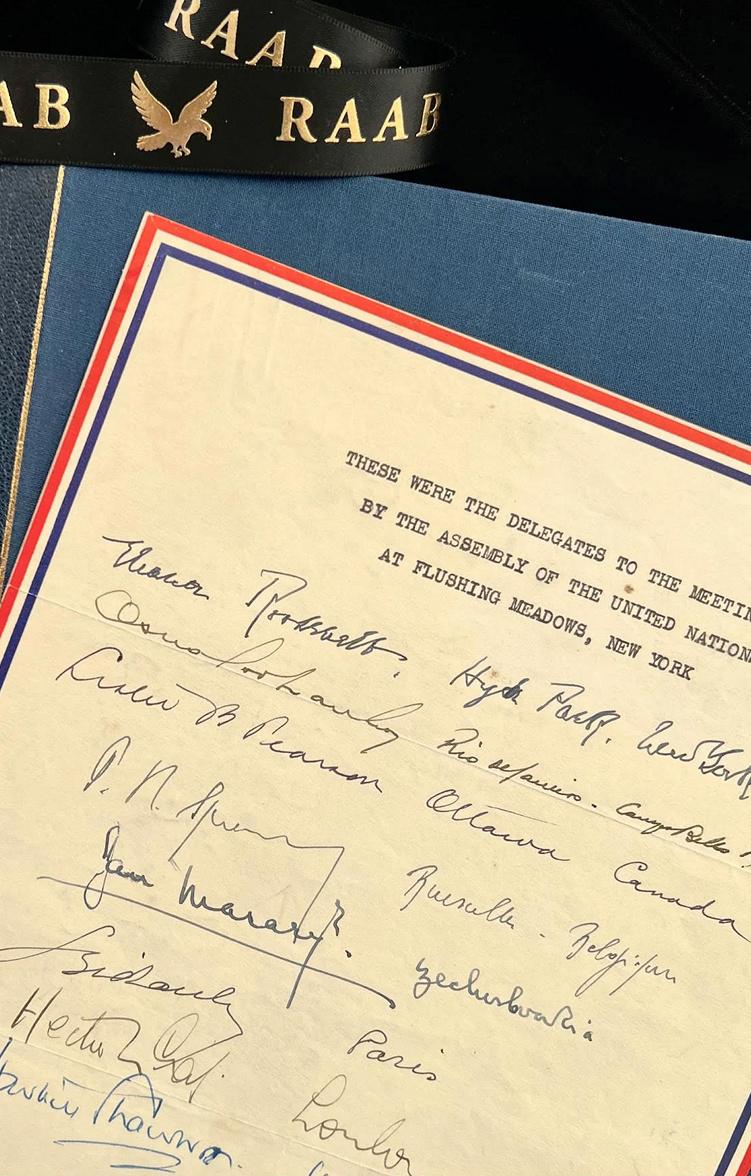 RAAB
AB RAAB
THESE WERE THE DELEGATES TO THE MEETIN
BY THE ASSEMBLY OF THE UNITED NATION
AT FLUSHING MEADOWS, NEW YORK
Eleanor Roosevelt, Hyde Park, New York
Rio de Janeiro -
Lester B Pearson Ottawa Canada
Bruxelles - Belgium
Jan Masaryk. Czechoslovakia
Paris
Hector London